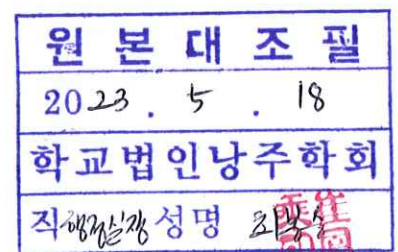 원본대조필
2023. 5. 18
학교법인낭주학회
직 행정실장 성명